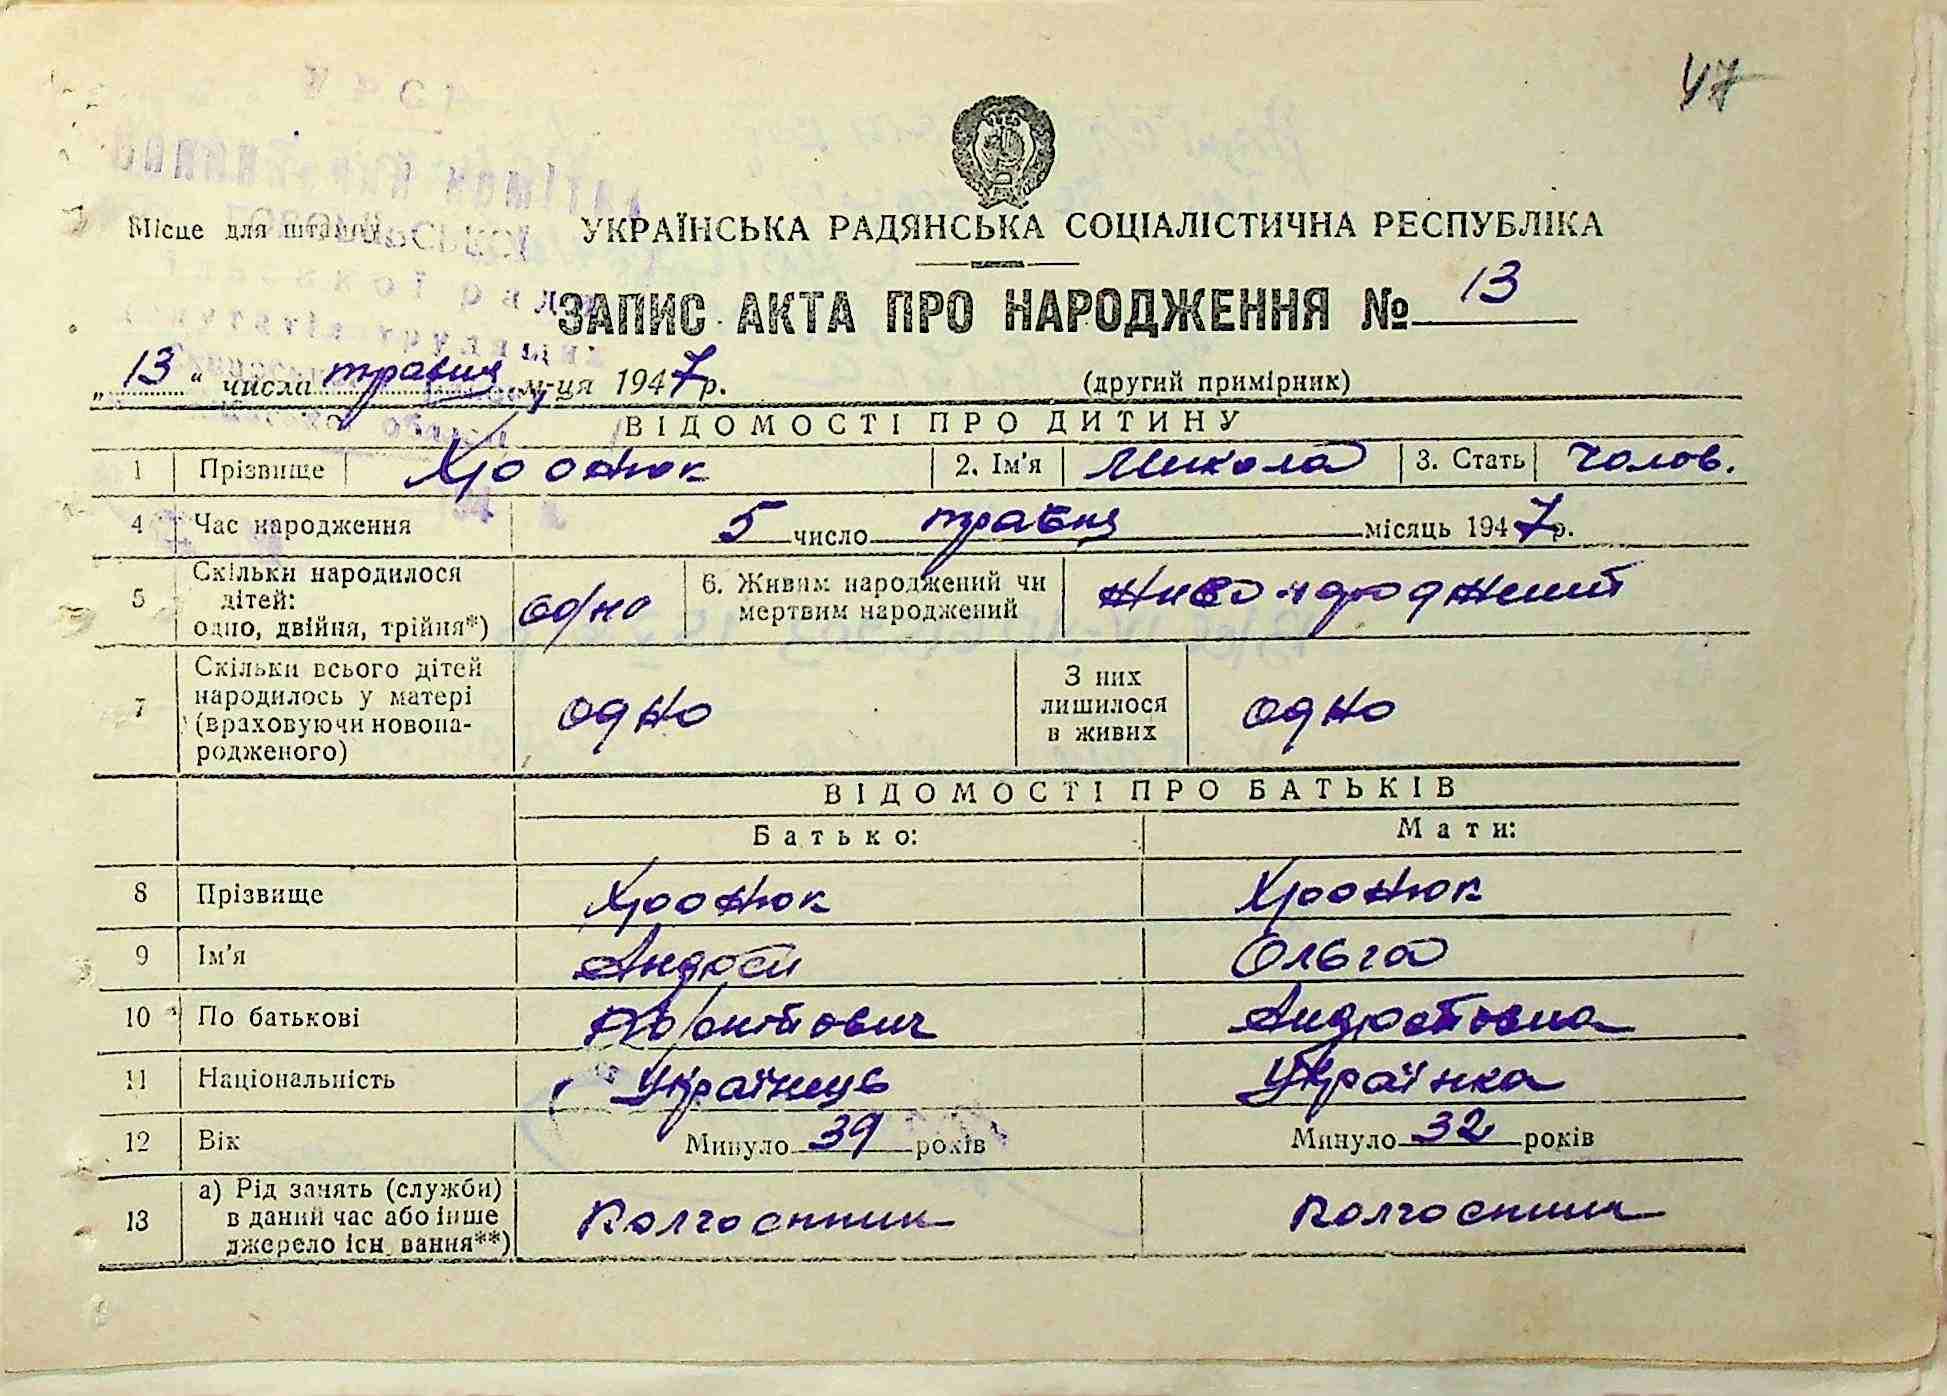 47
Місце для штампу
УКРАЇНСЬКА РАДЯНСЬКА СОЦІАЛІСТИЧНА РЕСПУБЛІКА
ЗАПИС АКТА ПРО НАРОДЖЕННЯ № 13
„13“ числа травня м-ця 1947 р. (другий примірник)
ВІДОМОСТІ ПРО ДИТИНУ
1 Прізвище 2. Ім'я Микола 3. Стать Чолов.
4 Час народження 5 число травня місяць 1947 р.
5 Скільки народилося дітей: одно, двійня, трійня*) одно 6. Живим народжений чи мертвим народжений живонароджений
7 Скільки всього дітей народилось у матері (враховуючи новонародженого) одно З них лишилося в живих одно
ВІДОМОСТІ ПРО БАТЬКІВ
Батько: Мати:
8 Прізвище
9 Ім'я Андрій Ольга
10 По батькові Андріївна
11 Національність Українець Українка
12 Вік Минуло 39 років Минуло 32 років
13 а) Рід занять (служби) в даний час або інше джерело існ вання**) Колгоспник Колгоспниця